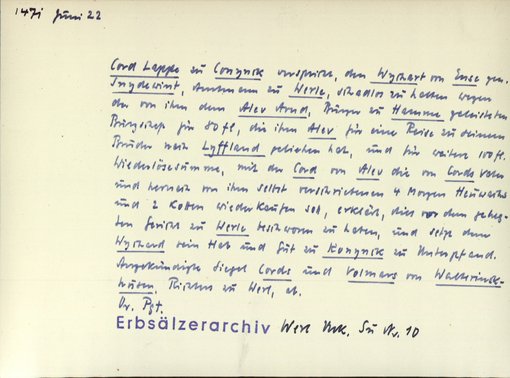 1471 Juni 22
Cord Lappe zu Conynck verspricht, den Wychart von Ense gen.
Snydewint, Amtmann zu Werle, schadlos zu halten wegen
der von ihm dem Alev Arnd, Bürger zu Hamme geleisteten
Bürgschaft für 80 fl, die ihm Alev für eine Reise zu seinem
Bruder nach Lyffland geliehen hat, und für weitere 100 fl.
Wiederlösesumme, mit der Cord von Alev die von Cords Vater
und hernach von ihm selbst verschriebenen 4 Morgen Heuwachs
und 2 Kotten wiederkaufen soll, erklärt, dies vor dem geheg-
ten Gericht zu Werle beschworen zu haben, und setzt dem
Wychard sein Hab und Gut zu Konynck zu Unterpfand.
Angekündigte Siegel Cords und Volmars von
Richters zu Werl, ab.
Or. Pgt.
Erbsälzerarchiv Werl Urk. Su Nr. 10